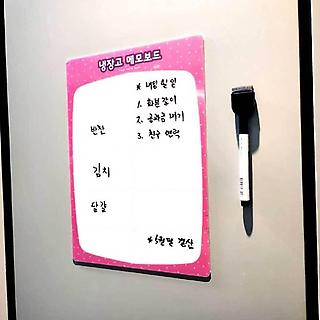 냉장고 메모보드
* 내일 할 일
1. 화분 갈이
2. 공과금 내기
3. 친구 연락
반찬
김치
달걀
*5월말 결산